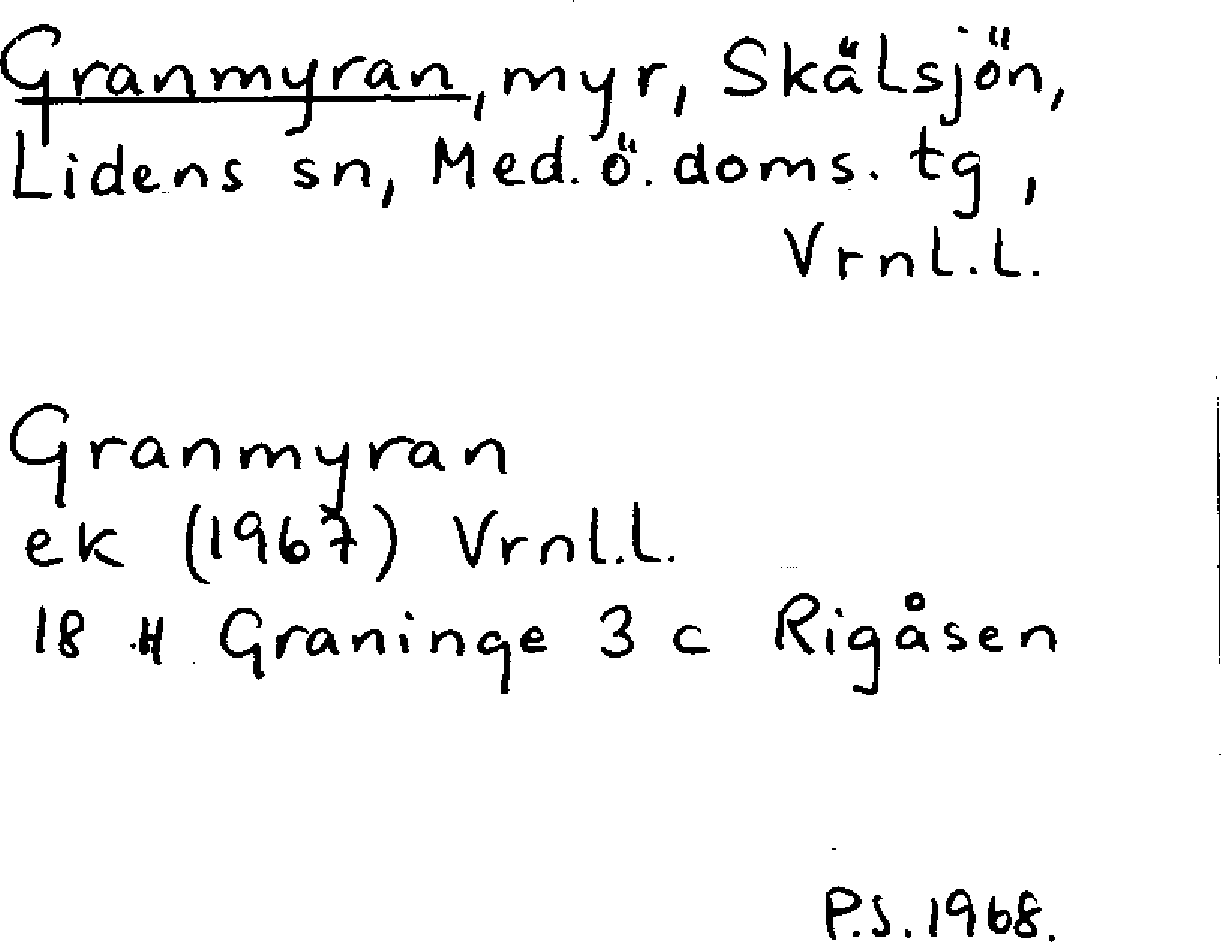 Granmyran, myr, Skälsjön,
Lidens sn, Med. ö. doms. tg,
Vrnl.l.
Granmyran
ek (1967) Vrnl.l.
18 H Graninge 3 c Rigåsen
P.S. 1968.